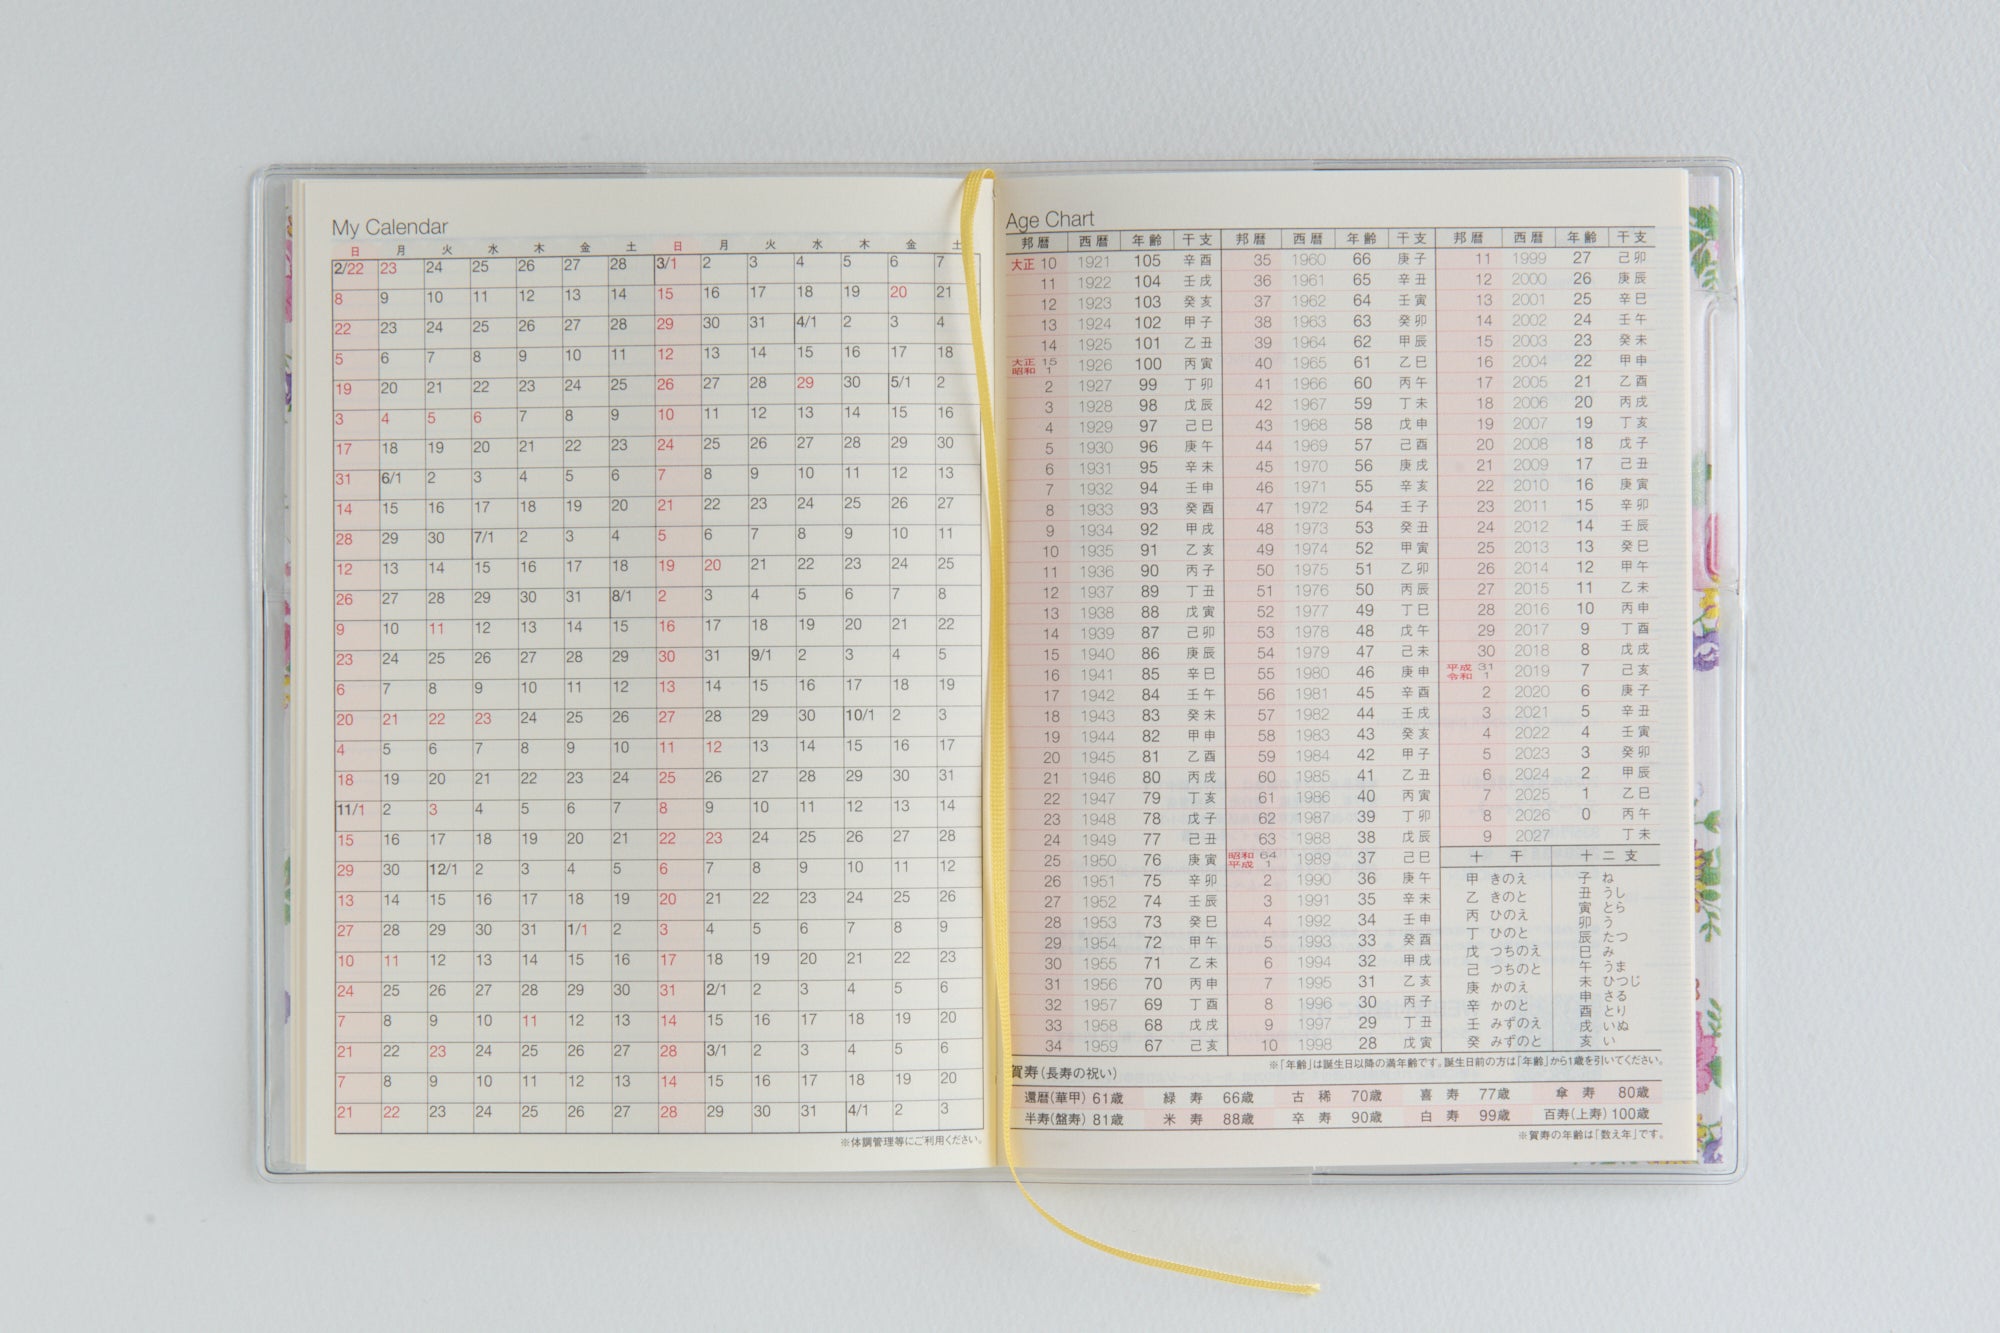 My Calendar
日 月 火 水 木 金 土 日 月 火 水 木 金 土
2/22 23 24 25 26 27 28 3/1 2 3 4 5 6 7
8 9 10 11 12 13 14 15 16 17 18 19 20 21
22 23 24 25 26 27 28 29 30 31 4/1 2 3 4
5 6 7 8 9 10 11 12 13 14 15 16 17 18
19 20 21 22 23 24 25 26 27 28 29 30 5/1 2
3 4 5 6 7 8 9 10 11 12 13 14 15 16
17 18 19 20 21 22 23 24 25 26 27 28 29 30
31 6/1 2 3 4 5 6 7 8 9 10 11 12 13
14 15 16 17 18 19 20 21 22 23 24 25 26 27
28 29 30 7/1 2 3 4 5 6 7 8 9 10 11
12 13 14 15 16 17 18 19 20 21 22 23 24 25
26 27 28 29 30 31 8/1 2 3 4 5 6 7 8
9 10 11 12 13 14 15 16 17 18 19 20 21 22
23 24 25 26 27 28 29 30 31 9/1 2 3 4 5
6 7 8 9 10 11 12 13 14 15 16 17 18 19
20 21 22 23 24 25 26 27 28 29 30 10/1 2 3
4 5 6 7 8 9 10 11 12 13 14 15 16 17
18 19 20 21 22 23 24 25 26 27 28 29 30 31
11/1 2 3 4 5 6 7 8 9 10 11 12 13 14
15 16 17 18 19 20 21 22 23 24 25 26 27 28
29 30 12/1 2 3 4 5 6 7 8 9 10 11 12
13 14 15 16 17 18 19 20 21 22 23 24 25 26
27 28 29 30 31 1/1 2 3 4 5 6 7 8 9
10 11 12 13 14 15 16 17 18 19 20 21 22 23
24 25 26 27 28 29 30 31 2/1 2 3 4 5 6
7 8 9 10 11 12 13 14 15 16 17 18 19 20
21 22 23 24 25 26 27 28 3/1 2 3 4 5 6
7 8 9 10 11 12 13 14 15 16 17 18 19 20
21 22 23 24 25 26 27 28 29 30 31 4/1 2 3
※体調管理等にご利用ください。
Age Chart
邦暦 西暦 年齢 干支 邦暦 西暦 年齢 干支 邦暦 西暦 年齢 干支
大正 10 1921 105 辛酉 35 1960 66 庚子 11 1999 27 己卯
11 1922 104 壬戌 36 1961 65 辛丑 12 2000 26 庚辰
12 1923 103 癸亥 37 1962 64 壬寅 13 2001 25 辛巳
13 1924 102 甲子 38 1963 63 癸卯 14 2002 24 壬午
14 1925 101 乙丑 39 1964 62 甲辰 15 2003 23 癸未
大正 15 昭和 1 1926 100 丙寅 40 1965 61 乙巳 16 2004 22 甲申
2 1927 99 丁卯 41 1966 60 丙午 17 2005 21 乙酉
3 1928 98 戊辰 42 1967 59 丁未 18 2006 20 丙戌
4 1929 97 己巳 43 1968 58 戊申 19 2007 19 丁亥
5 1930 96 庚午 44 1969 57 己酉 20 2008 18 戊子
6 1931 95 辛未 45 1970 56 庚戌 21 2009 17 己丑
7 1932 94 壬申 46 1971 55 辛亥 22 2010 16 庚寅
8 1933 93 癸酉 47 1972 54 壬子 23 2011 15 辛卯
9 1934 92 甲戌 48 1973 53 癸丑 24 2012 14 壬辰
10 1935 91 乙亥 49 1974 52 甲寅 25 2013 13 癸巳
11 1936 90 丙子 50 1975 51 乙卯 26 2014 12 甲午
12 1937 89 丁丑 51 1976 50 丙辰 27 2015 11 乙未
13 1938 88 戊寅 52 1977 49 丁巳 28 2016 10 丙申
14 1939 87 己卯 53 1978 48 戊午 29 2017 9 丁酉
15 1940 86 庚辰 54 1979 47 己未 30 2018 8 戊戌
16 1941 85 辛巳 55 1980 46 庚申 平成 31 令和 1 2019 7 己亥
17 1942 84 壬午 56 1981 45 辛酉 2 2020 6 庚子
18 1943 83 癸未 57 1982 44 壬戌 3 2021 5 辛丑
19 1944 82 甲申 58 1983 43 癸亥 4 2022 4 壬寅
20 1945 81 乙酉 59 1984 42 甲子 5 2023 3 癸卯
21 1946 80 丙戌 60 1985 41 乙丑 6 2024 2 甲辰
22 1947 79 丁亥 61 1986 40 丙寅 7 2025 1 乙巳
23 1948 78 戊子 62 1987 39 丁卯 8 2026 0 丙午
24 1949 77 己丑 63 1988 38 戊辰 9 2027 丁未
25 1950 76 庚寅 昭和 64 平成 1 1989 37 己巳 十干 十二支
26 1951 75 辛卯 2 1990 36 庚午
27 1952 74 壬辰 3 1991 35 辛未
28 1953 73 癸巳 4 1992 34 壬申
29 1954 72 甲午 5 1993 33 癸酉
30 1955 71 乙未 6 1994 32 甲戌
31 1956 70 丙申 7 1995 31 乙亥
32 1957 69 丁酉 8 1996 30 丙子
33 1958 68 戊戌 9 1997 29 丁丑
34 1959 67 己亥 10 1998 28 戊寅
甲 きのえ
乙 きのと
丙 ひのえ
丁 ひのと
戊 つちのえ
己 つちのと
庚 かのえ
辛 かのと
壬 みずのえ
癸 みずのと
子 ね
丑 うし
寅 とら
卯 う
辰 たつ
巳 み
午 うま
未 ひつじ
申 さる
酉 とり
戌 いぬ
亥 い
※「年齢」は誕生日以降の満年齢です。誕生日前の方は「年齢」から1歳を引いてください。
賀寿(長寿の祝い)
還暦(華甲) 61歳 緑寿 66歳 古稀 70歳 喜寿 77歳 傘寿 80歳
半寿(盤寿) 81歳 米寿 88歳 卒寿 90歳 白寿 99歳 百寿(上寿) 100歳
※賀寿の年齢は「数え年」です。